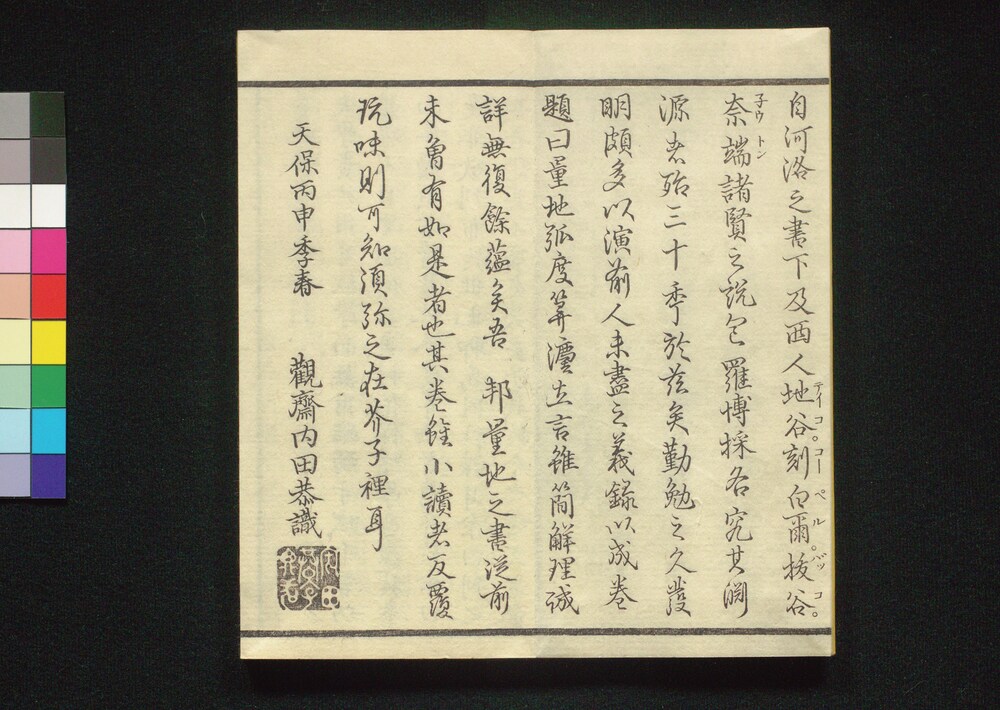 自河洛之書下及西人地谷刻白爾抜谷
テイコ。コーペル。バッコ。
奈端諸賢之説包羅博採各究其淵
子ウトン
源者殆三十季於茲矣勤勉之久發
明頗多以演前人未盡之義録以成巻
題曰量地弧度算瀍立言雖簡解理誠
詳無復餘蘊矣吾 邦量地之書從前
未曽有如是者也其巻雖小讀者反覆
玩味則可知須弥之在芥子裡耳
天保丙申季春 觀齋内田恭識